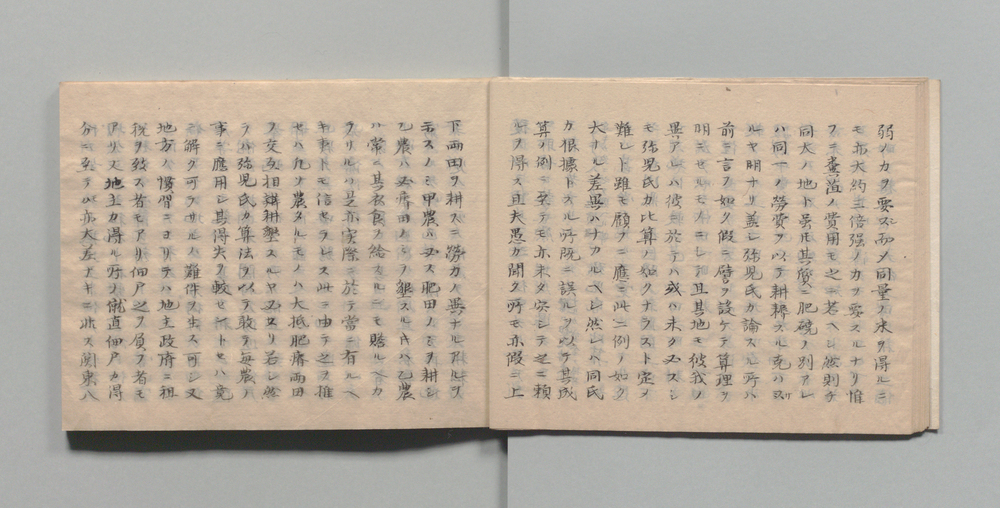 弱ノ力ヲ要ス而メ同量ノ米ヲ得ルニ
モ亦大約三倍强ノ力ヲ要スルナリ惟
フニ糞菑ノ費用モ之ニ若ヘシ然則チ
同大ノ地ト虽𪜈其質ニ肥磽ノ別アレ
ハ同一ノ勞費ヲ以テ耕耨スル克ハサ
ルヤ明ナリ蓋シ弥児氏カ論スル所ハ
前ニ言フ如ク假ニ譬ヲ設ケテ算理ヲ
明ニセルモノニシテ且其地モ彼我ノ
異アレハ彼ニ於テハ或ハ未タ必スシ
モ弥児氏カ比算ノ如クナラスト定メ
難シト雖モ顧フニ應ニ此二例ノ如ク
大ナル差異ハナカルヘシ然レハ同氏
カ根據トスル所既ニ誤ルヲ以テ其成
算ノ例ニ至テモ亦未タ突シテ之ニ頼
ルヲ得ス且夫愚カ聞ク所モ亦假ニ上
下両田ヲ耕スニ勞力ノ異ナルアルヲ
示スノミ甲農ハ必ス肥田ノミヲ耕シ
乙農ハ必瘠田ノミヲ墾スル𪜈ハ乙農
ハ常ニ其衣食ノ給スルニモ贍ルヘカ
ラサルハ是亦実際ニ於テ當ニ有ルヘ
キ事トモ信セラレス此ニ由テ之ヲ推
セハ凡ソ農タルモノハ大抵肥瘠両田
ヲ交互相雑耕墾スルヤ必セリ若シ然
ラハ弥児氏カ算法ヲ以テ敢テ毎農ノ
事ニ應用シ其得失ヲ較セントセハ竟
ニ解ク可ラサルノ難件ヲ生ス可シ又
地方ノ慣習ニヨリテハ地主政府ニ租
税ヲ致ス者モアリ佃戸之ヲ負フ者モ
アリ又地主カ得ル所ノ僦直佃戸カ得
分ニ至テハ亦大差アキニ非ス関東八